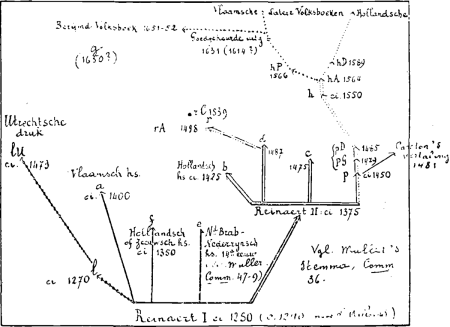 Vlaamsche : Latere Volksboeken : Hollandsche
Berijmd Volksboek 1651-52
Goedgekeurde uitg
1631 (1614?)
g
(1650?)
hP
1566
hD 1589
hA 1564
h
ci. 1550
C 1539
r
rA 1498
Utrechtsche
druk
lu
ci. 1473
Vlaamsch hs.
a
ci 1400
Hollandsch b
hs ci 1425
d
1487
c
1475
pD 1485
pG 1479
p ci 1450
Caxton's
vertaling
1481
Reinaert II ci 1375
f
Hollandsch
of Zeeuwsch hs.
ci 1350
e
Nd Brab-
Nederrijnsch
hs. 14e eeuw
Muller
Comm. 47-9)
Vgl. Muller's
Stemma, Comm
36.
l
ci 1270
Reinaert I ci 1250